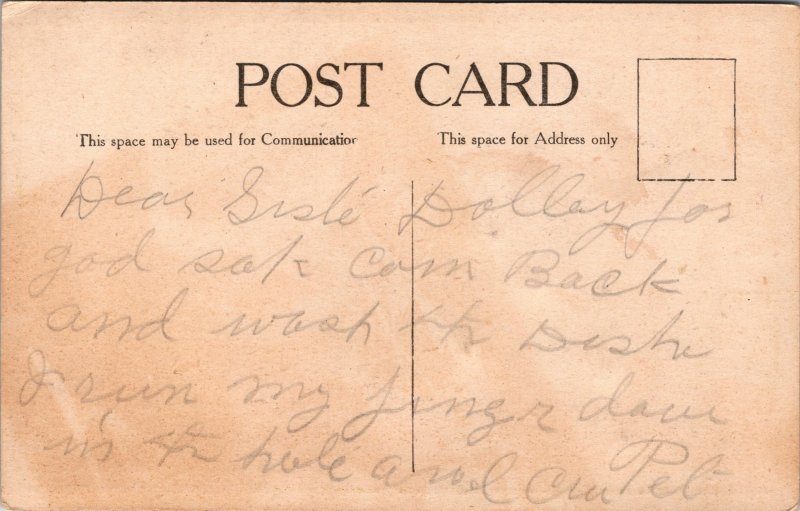 POST CARD
This space may be used for Communication
This space for Address only
Dear Siste Dolley for
god sak com Back
and wash th Deshe
I run my finger down
in th hole and